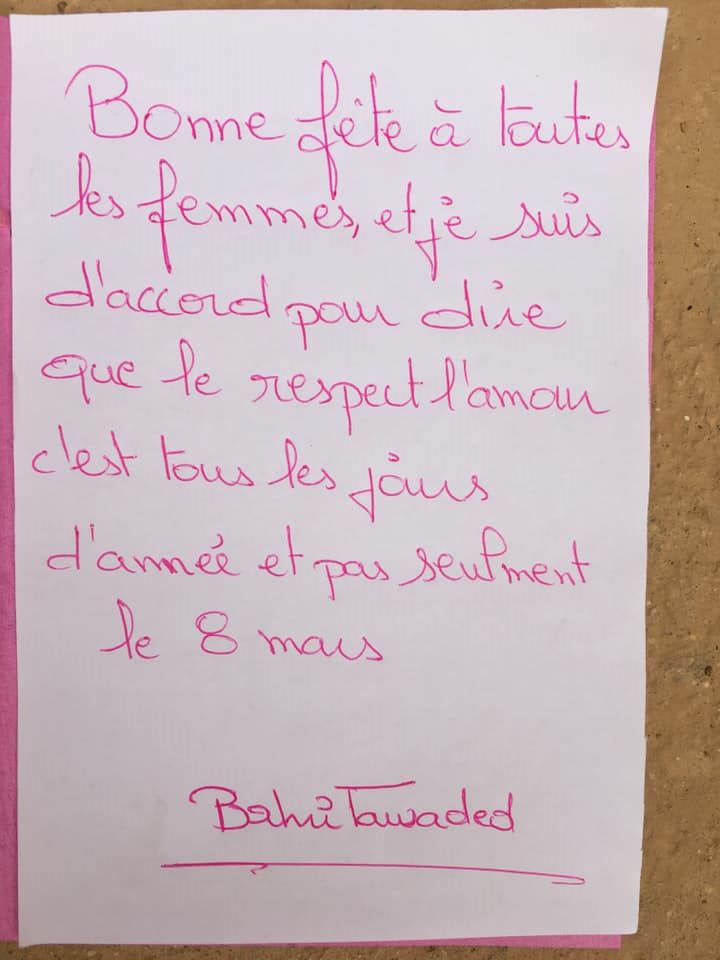 Bonne fête à toutes
les femmes, et je suis
d'accord pour dire
que le respect l'amour
c'est tous les jours
d'année et pas seulment
le 8 mars
Bahii Tawaded